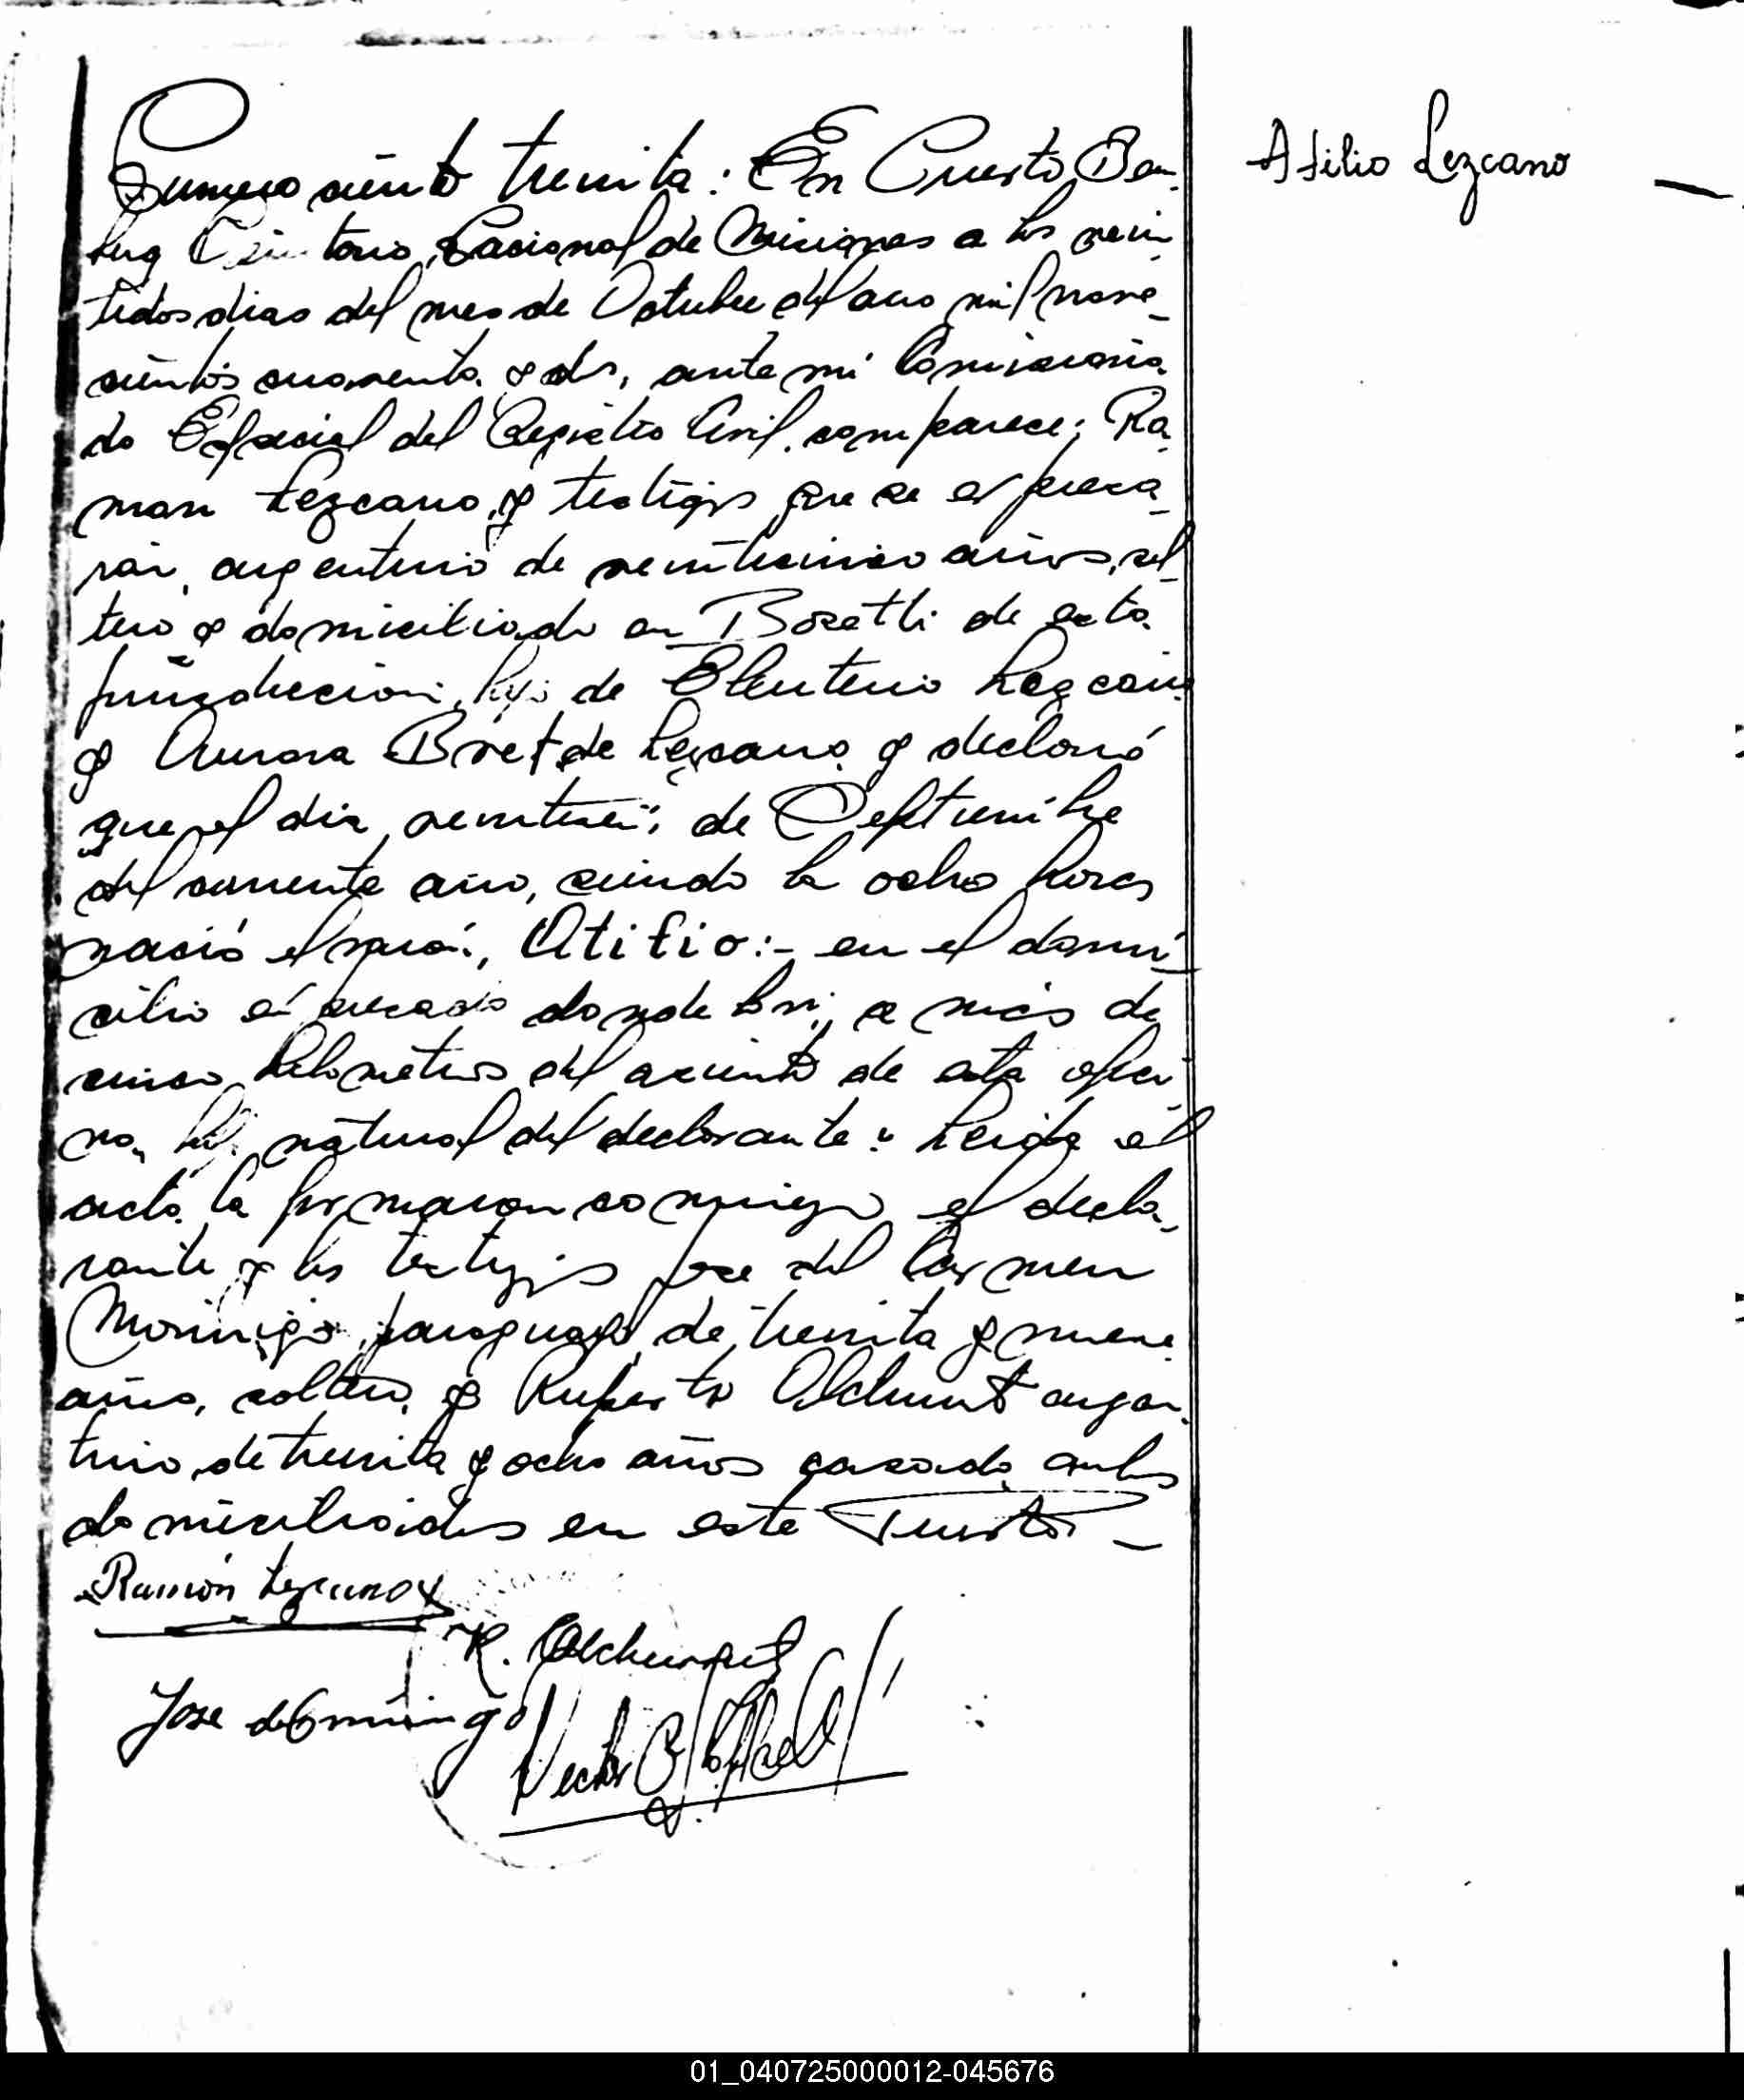 Numero ciento treinta: En Puerto Bem-
berg Territorio Nacional de Misiones a los vein-
tidos dias del mes de Octubre del año mil nove-
cientos cuarenta y dos, ante mi Comisiona-
do Especial del Registro Civil. comparece; Ra-
mon Lezcano, y testigos que se expresa-
rán, argentino de veinticinco años, sol-
tero y domiciliado en Bosetti de esta
jurisdiccion, hijo de Eleuterio Lezcano
y Aurora Bret de Lezcano y declaró
que el dia veintiseis de Septiembre
del corriente año, siendo la ocho horas
nació el varón, Atilio:- en el domi-
cilio expresado donde vive, a más de
cinco kilometros del asiento de esta ofici-
na, hijo natural del declarante: Leida el
acta la firmaron conmigo el decla-
rante y los testigos Jose del Carmen
Morinigo, paraguayo, de treinta y nueve
años, soltero, y Ruperto Olchunt argen-
tino, de treinta y ocho años casado, ambos
domiciliados en este Puerto —
Ramón Lezcano
R.
Jose del C
Atilio Lezcano —
01_040725000012-045676